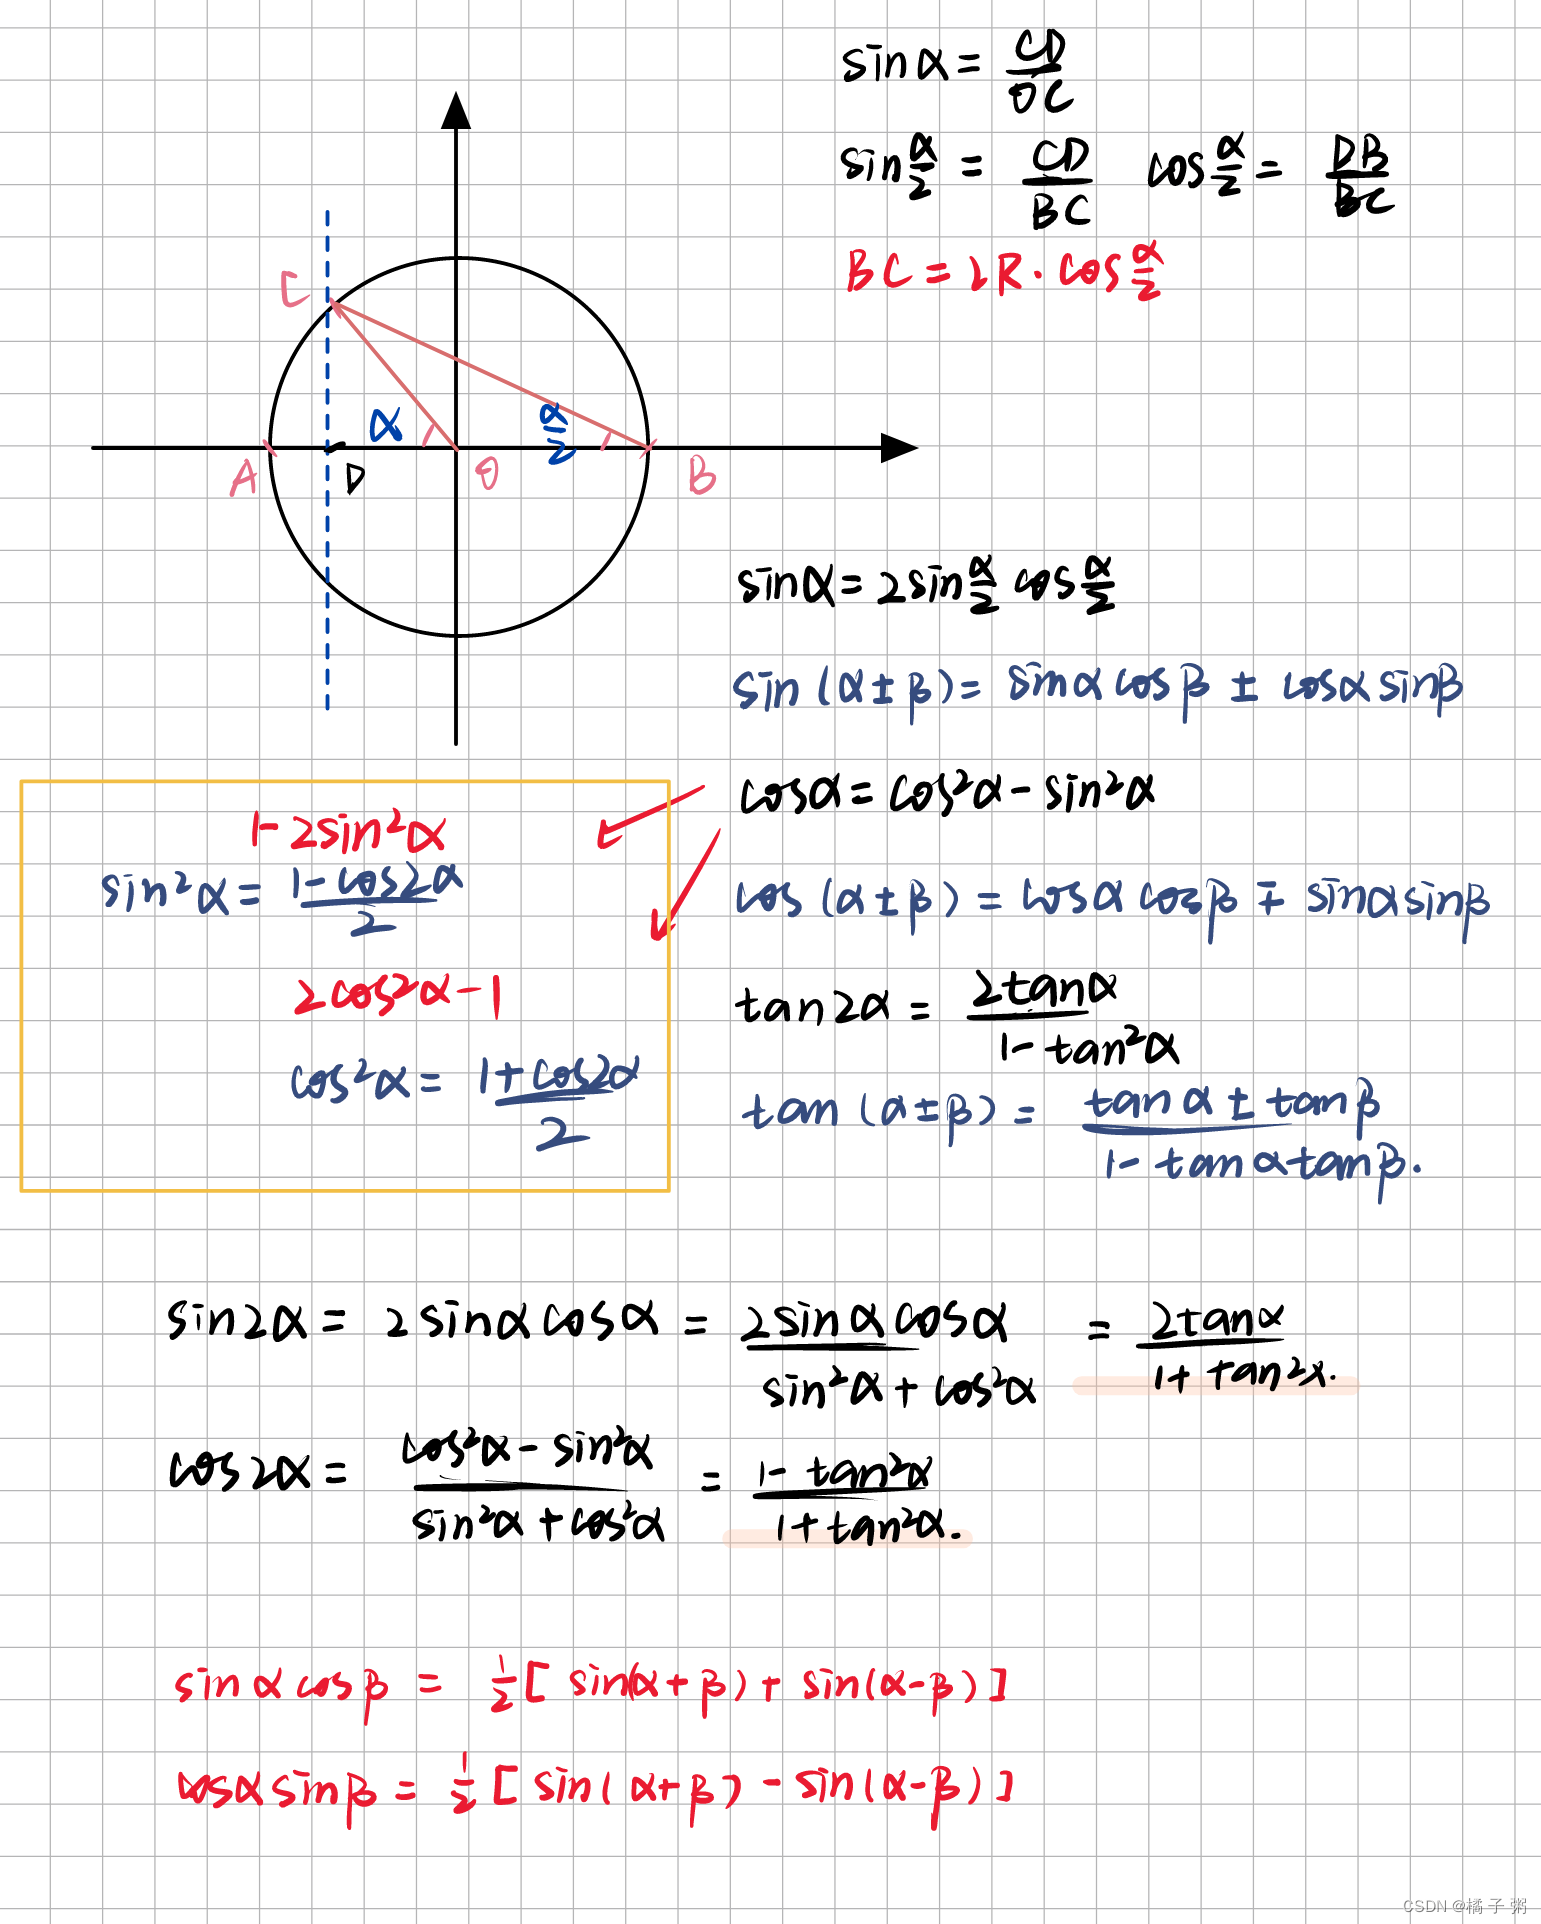 sinα = CD/OC
sin α/2 = CD/BC cos α/2 = DB/BC
BC = 2R · cos α/2
C
α
α/2
A
D
O
B
sinα = 2sin α/2 cos α/2
sin(α±β) = sinαcosβ ± cosαsinβ
cosα = cos²α - sin²α
cos(α±β) = cosαcosβ ∓ sinαsinβ
tan2α = 2tanα / 1-tan²α
tan(α±β) = tanα ± tanβ / 1-tanαtanβ.
1-2sin²α
sin²α = 1-cos2α / 2
2cos²α-1
cos²α = 1+cos2α / 2
sin2α = 2sinαcosα = 2sinαcosα / sin²α+cos²α = 2tanα / 1+tan²x.
cos2α = cos²α-sin²α / sin²α+cos²α = 1-tan²α / 1+tan²α.
sinαcosβ = ½[sin(α+β)+sin(α-β)]
cosαsinβ = ½[sin(α+β)-sin(α-β)]
CSDN @橘子粥